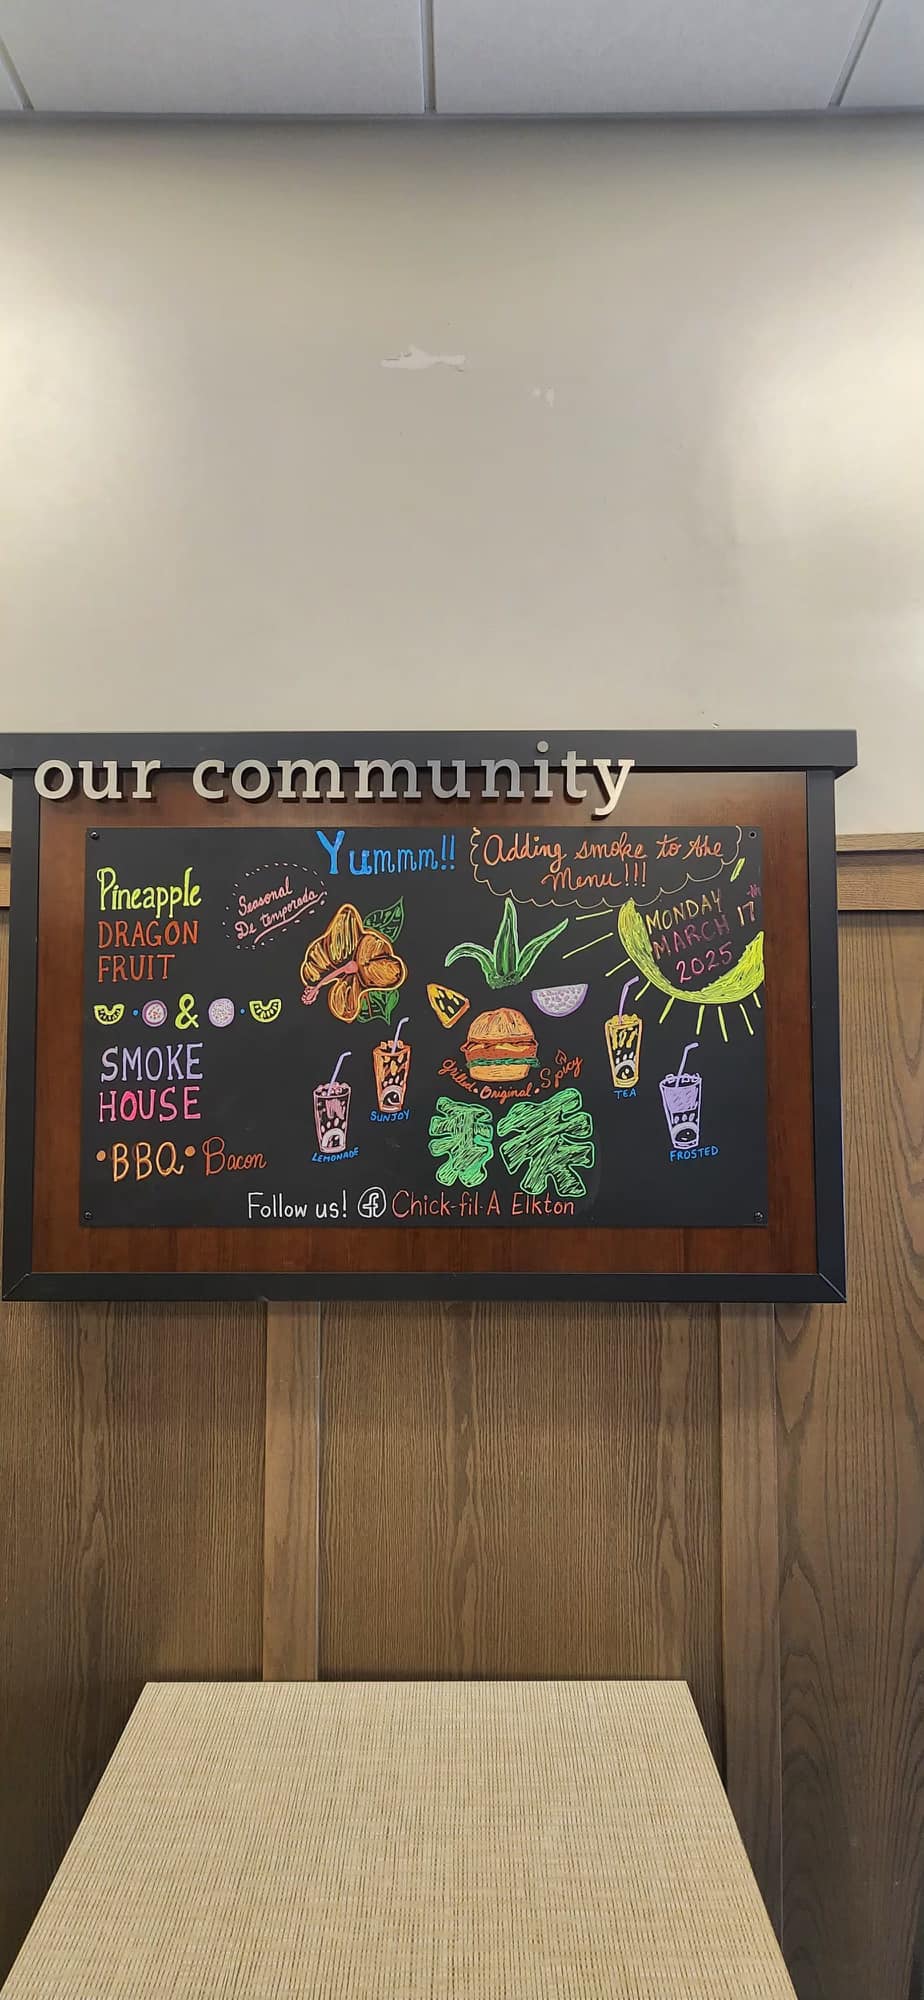 our community
Yummm!!
Adding smoke to the
Menu!!!
Pineapple
DRAGON
FRUIT
&
SMOKE
HOUSE
•BBQ• Bacon
Seasonal
De temporada
MONDAY
MARCH 17th
2025
Grilled • Original • Spicy
LEMONADE
SUNJOY
TEA
FROSTED
Follow us! f Chick-fil-A Elkton